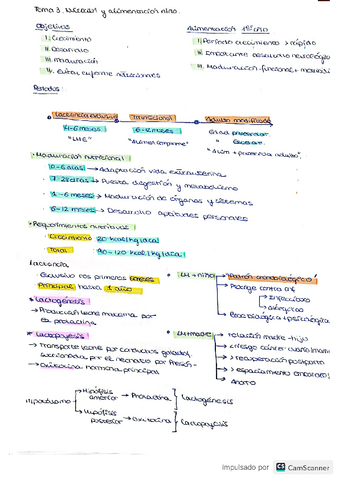 Tema 3. Nutrición y alimentación niño.
Objetivos
I. Crecimiento
II. Desarrollo
III. Maduración
IV. Evitar enferme
Alimentación 1er año
I. Período crecimiento → rápido
II. Importante desarrollo neurológico
III. Maduración funcional +
Períodos
Lactancia exclusiva
Transicional
Adulto modificado
4-6 meses
6-12 meses
Edad preescolar
"LME"
" Escolar
"Alim + puramente adulto".
· Maduración nutricional
0-6 días → Adaptación vida extrauterina
7-28 días → Puesta digestión y metabolismo
1-6 meses → Maduración de órganos y sistemas
6-12 meses → Desarrollo aptitudes personales
· Requerimientos nutritivos
Crecimiento 20 kcal/kg/día
Total 90-120 kcal/kg/día
Lactancia
· Exclusiva los primeros 6 meses
Principal hasta 1 año
* Lactogénesis
→ Producción leche materna por
la prolactina
* Lactopoyesis
→ Transporte leche por conductos galactóf.
succionada por el neonato por Presión-
→ Oxitocina hormona principal
LM + niño
→ Patrón cronobiológico
→ Protege contra enf
→ Infecciosas
→ Alérgicas
→ Pca biológica + psicológica
LM + madre
→ relación madre-hijo
→ < riesgo cáncer ovario/mama
→ > recuperación postparto
→ > espaciamiento embarazos
→ Ahorro
Hipotálamo
→ Hipófisis anterior → Prolactina } Lactogénesis
→ Hipófisis posterior → Oxitocina } Lactopoyesis
Impulsado por CS CamScanner